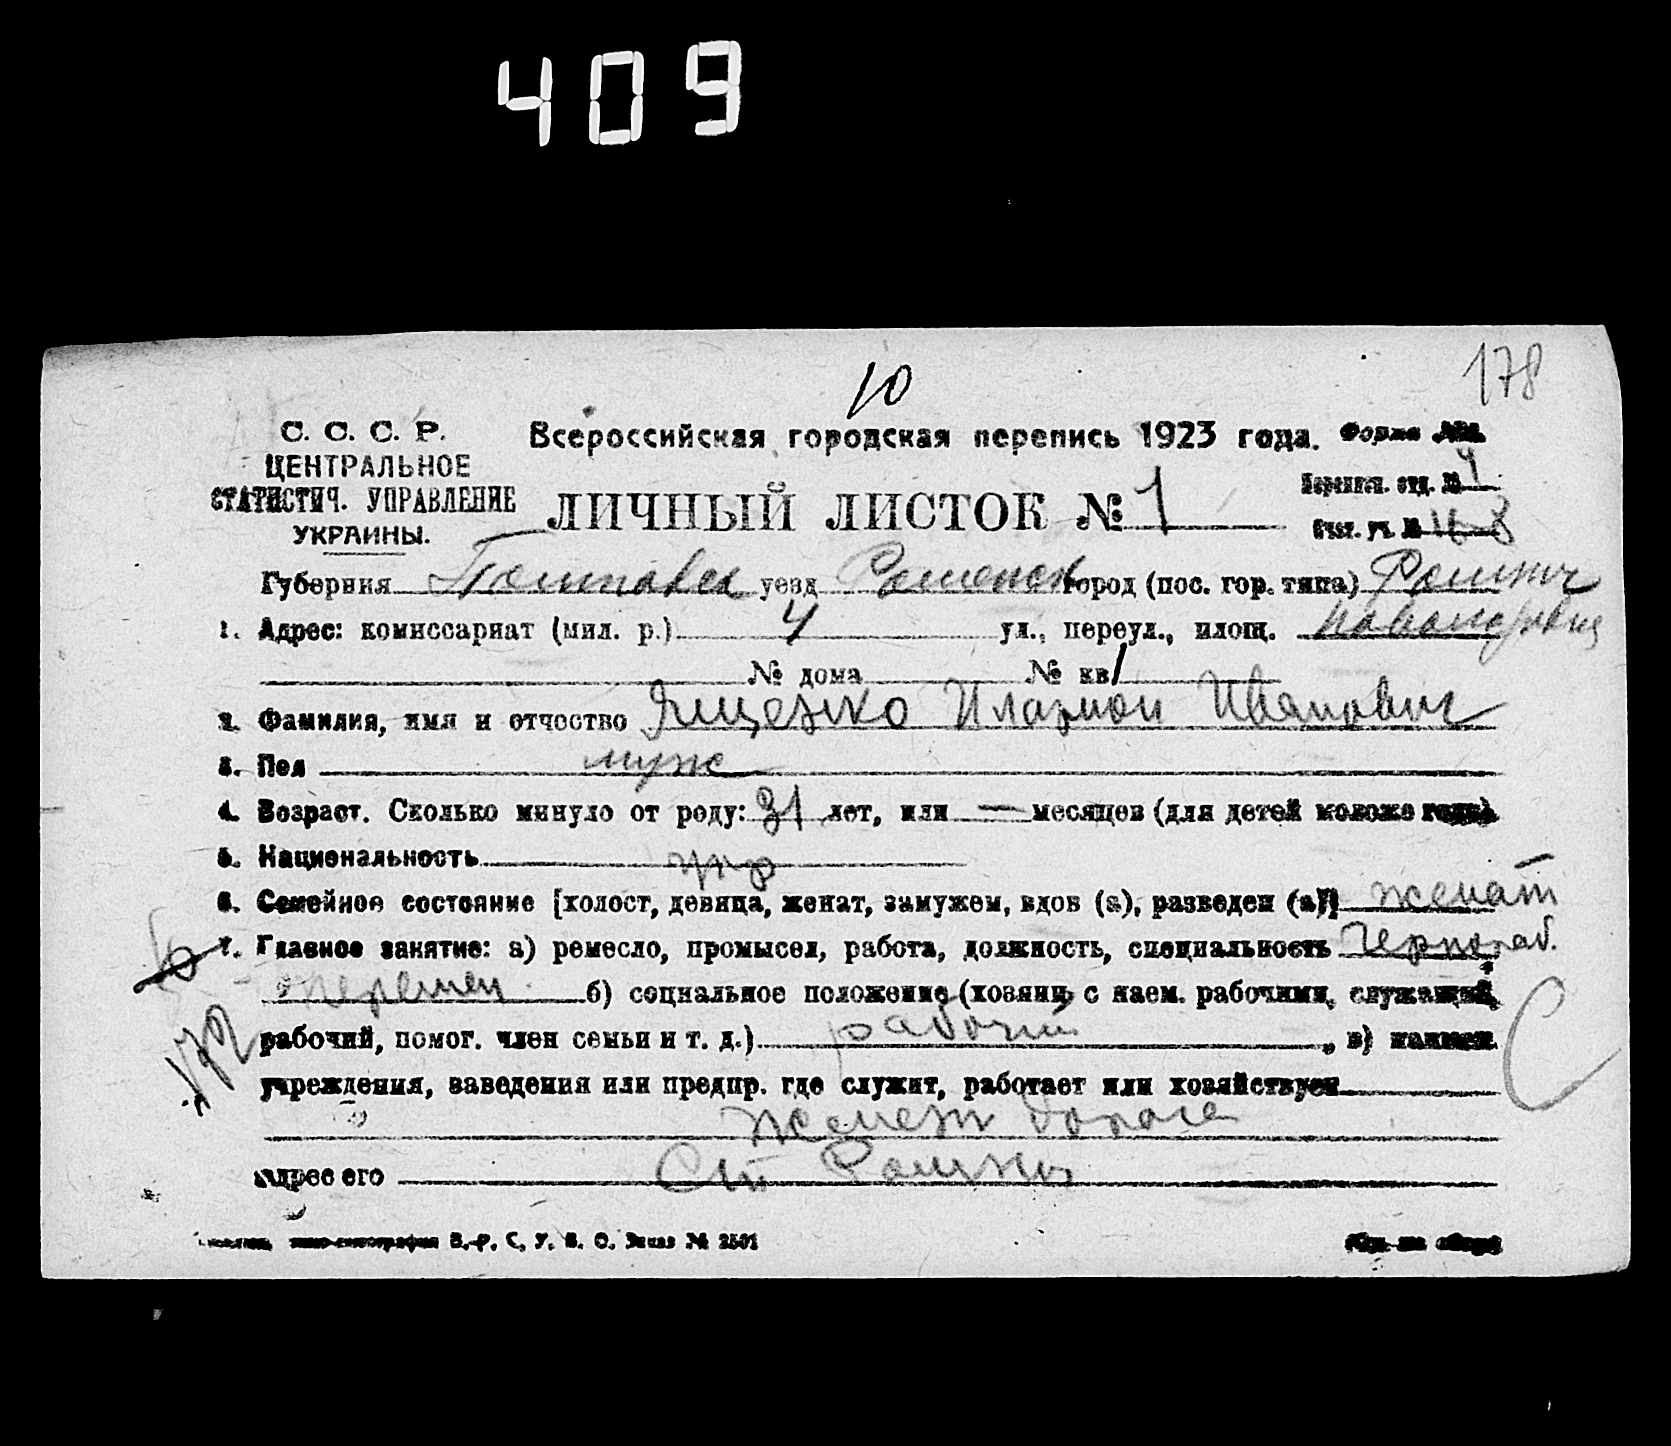 409
178
10
С. С. С. Р.
ЦЕНТРАЛЬНОЕ
СТАТИСТИЧ. УПРАВЛЕНИЕ
УКРАИНЫ.
Всероссийская городская перепись 1923 года. Форма
ЛИЧНЫЙ ЛИСТОК № 1
отд. № 4
уч. №
Губерния Полтавск уезд Роменск город (пос. гор. типа) Ромны
1. Адрес: комиссариат (мил. р.) 4 ул., переул., площ.
№ дома № кв 1
2. Фамилия, имя и отчество Ященко Иларион Иванович
3. Пол муж
4. Возраст. Сколько минуло от роду: 31 лет, или — месяцев (для детей моложе года)
5. Национальность укр
6. Семейное состояние [холост, девица, женат, замужем, вдов (а), разведен (а)] женат
7. Главное занятие: а) ремесло, промысел, работа, должность, специальность Чернораб.
б) социальное положение (хозяин с наем. рабочими, служащий,
рабочий, помог. член семьи и т. д.) рабочий, в) наимен.
учреждения, заведения или предпр. где служит, работает или хозяйствует
Железн дорога
адрес его Ст Ромны
В. Р. С. У. В. О. Заказ № 2501